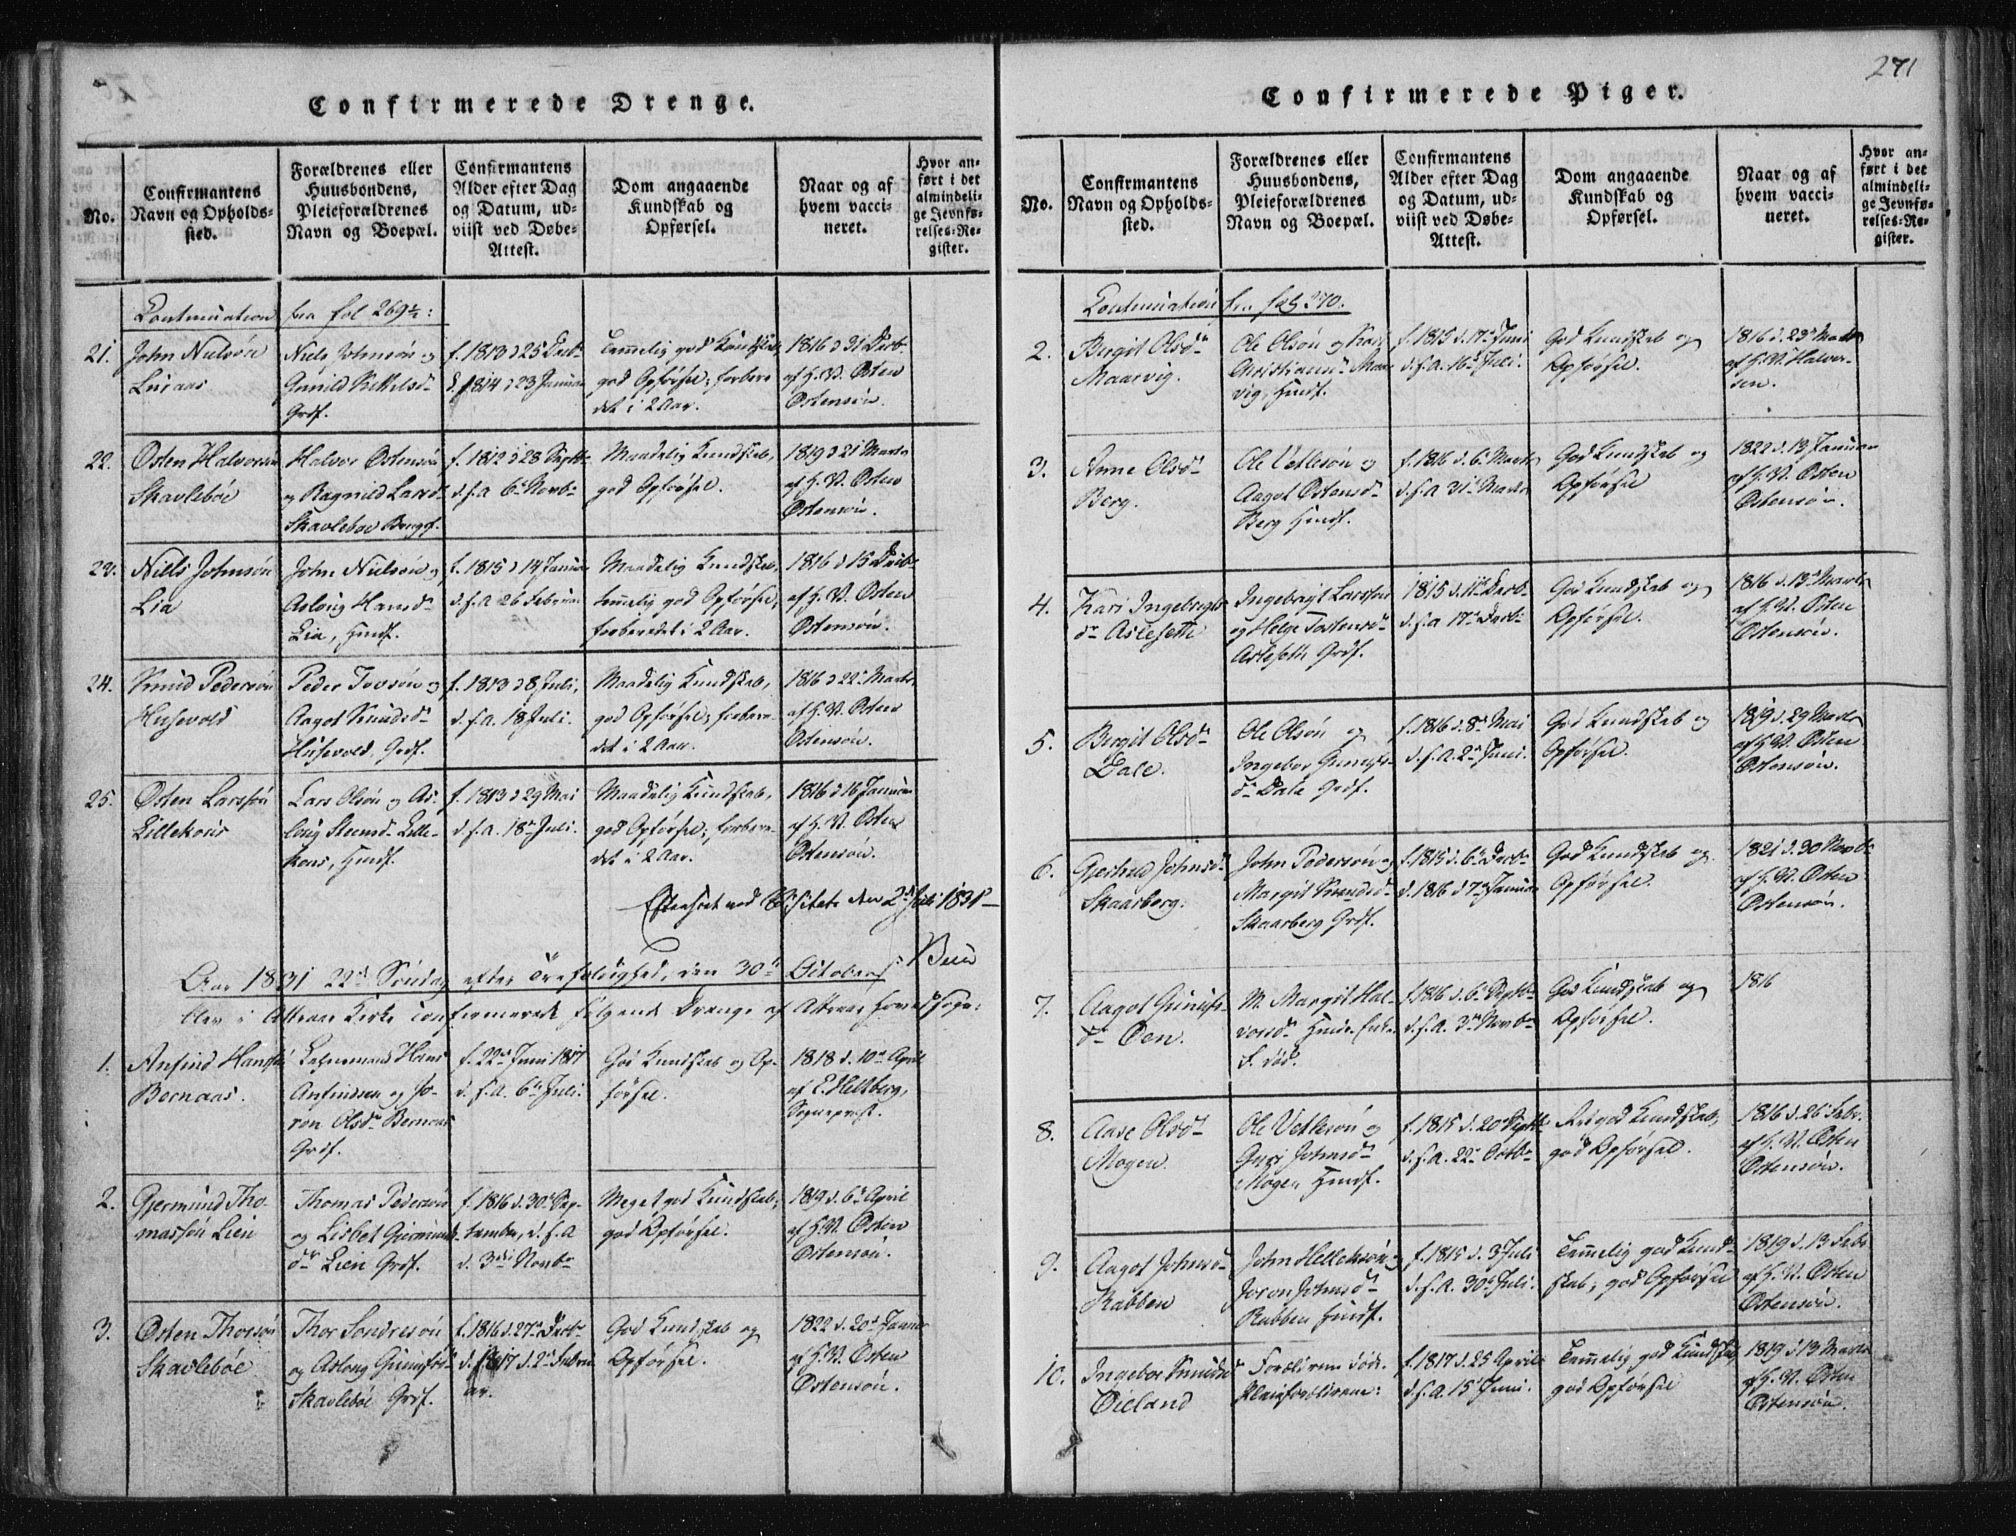 271
Confirmerede Drenge.
No.
Confirmantens
Navn og Opholds-
sted.
Forældrenes eller
Huusbondens,
Pleieforældrenes
Navn og Boepæl.
Confirmantens
Alder efter Dag
og Datum, ud-
viist ved Døbe-
Attest.
Dom angaaende
Kundskab og
Opførsel.
Naar og af
hvem vacci-
neret.
Hvor an-
ført i det
almindeli-
ge Jevnfø-
relses-Re-
gister.
Continuation fra fol 269½:
21.
John Nielsön
Luraas
Niels Johnsön og
Gunild
Grdf.
f. 1813 d 25 Decb.
d 1814 d 23 Januar
Temmelig god Kundskab,
god Opførsel; forbere
det i 2 Aar.
1816 d 31 Decb.
af H. W. Østen
Østensön.
22.
Østen Halvorsen
Skavleböe
Halvor Østensön
og Ragnild Larsd.
Skavleboe Bruggf.
f. 1812 d 28 Septb.
d. s. A 6te Novbr
Maadelig Kundskab,
god Opførsel.
1819 d 21 Marts
af H. W. Østen
Østensön.
23.
Niels Johnsön
Lia
John Nielsön og
Aslong Hansd.
Lia, Huusf.
f. 1815 d 14 Januar
d. s. A 26 Februar
Maadelig Kundskab,
temmelig god Opførsel;
forberedet i 2 Aar.
1816 d 15 Decb.
af H. W. Østen
Østensön.
24.
Knud Pedersön
Husevold
Peder Iversön og
Aagot Knudsd.
Husevold, Grdf.
f. 1813 d 8 Juli,
d. s. A. 18 Juli.
Maadelig Kundskab,
god Opførsel; forbere-
det i 2 Aar.
1816 d 22 Marts
af H. W. Østen
Østensön.
25.
Østen Larssön
Lillekaas
Lars Olsön og As-
long Steensd. Lille-
kaas, Huusf.
f. 1813 d 29 Mai
d. s. A. 18de Juli.
Maadelig Kundskab,
god Opførsel; forbere-
det i 2 Aar.
1816 d 16 Januar
af H. W. Østen
Østensön.
Efterseet ved Visitats den 2d Juli 1831
Aar 1831 22de Söndag efter Trefoldighed, den 30te October
blev i Attraae Kirke confirmerede følgende Drenge af Attraae Hovedsogn:
1.
Anfind Hanssön
Bernaas.
Lehnsmand Hans
Anfindsen og Jo-
ron Olsd. Bernaas
Grdf.
f. 22de Juni 1817
d. s. A. 6te Juli.
God Kundskab og Op-
førsel.
1818 d. 10de April
af E. Helsberg,
Sognepræst.
2.
Gjermund Tho-
massön Lien
Thomas Pedersön
og Lisbet Gjermunds
dr Lien Grdf.
f. 1816 d. 30te Sep-
tember, d. s. A
d. 3die Novbr
Meget god Kundskab;
god Opførsel.
1819 d. 6te April
af H. W. Østen
Østensön.
3.
Østen Thorsön
Skavleböe
Thor Sondresön
og Aslong Gunulfsd.
Skavleböe Grdf.
f. 1816 d. 27de Decbr
d. 1817 d. 2de Febru
ar.
God Kundskab og
Opførsel.
1822 d. 20de Januar
af H. W. Østen
Østensön.
Confirmerede Piger.
No.
Confirmantens
Navn og Opholds-
sted.
Forældrenes eller
Huusbondens,
Pleieforældrenes
Navn og Boepæl.
Confirmantens
Alder efter Dag
og Datum, ud-
viist ved Døbe-
Attest.
Dom angaaende
Kundskab og
Opførsel.
Naar og af
hvem vacci-
neret.
Hvor an-
ført i det
almindeli-
ge Jevnfø-
relses-Re-
gister.
Continuation fra fol 270.
2.
Birgit Olsdr
Maarvig.
Ole Olsön og Kari
Christiansdr Maar
vig, Huusf.
f. 1815 d. 17de Juni
d. s. A. 16de Juli.
God Kundskab og
Opførsel.
1816 d. 23de Marts
af H. W. Halvor-
sen.
3.
Anne Olsdr
Berg.
Ole Vetlesön og
Aagot Østensdr
Berg Huusf.
f. 1816 d. 6te Marts
d. s. A 31te Marts
God Kundskab og
Opførsel
1822 d. 13 Januar
af H. W. Østen
Østensön.
4.
Kari Ingebregts
dr Aslefeth
Ingebrigt Larssön
og Helge Tostensdr
Aslefeth Grdf.
1815 d. 11te Decb.
d. s. A 17de Decbr
God Kundskab og
Opførsel.
1816 d. 13de Marts
af H. W. Østen
Østensön.
5.
Birgit Olsdr
Dale.
Ole Olsön og
Ingebor Gunulfs-
dr Dale Grdf.
f. 1816 d. 8de Mai
d. s. A. 2den Juni.
God Kundskab og
Opførsel.
1819 d. 29 Marts
af H. W. Østen
Østensön.
6.
Gjertrud Johnsdr
Skaarberg.
John Pedersön og
Margit Knudsdr
Skaarberg Grdf.
f. 1815 d. 6te Decbr
d. 1816 d 7de Januar
God Kundskab og
Opførsel.
1821 d. 30 Novbr
af H. W. Østen
Østensön.
7.
Aagot Gunulfs-
dr Øen.
M. Margit Hal-
vorsdr
F. död.
f. 1816 d. 6te Septbr
d. s. A. 3die Novbr
God Kundskab og
Opførsel.
1816
8.
Aase Olsdr
Mogen
Ole Vetlesön og
Guri Johnsdr
Mogen Huusf.
f. 1815 d. 20de Septbr
d. s. A. 22de Octbr
god Kundskab,
god Opførsel.
1816 d. 26de Febr.
af H. W. Østen
Østensön.
9.
Aagot Johnsdr
Rabben
John Helleksön og
Joron Johnsdr
Rabben Huusf.
f. 1815 d. 3 Juli
d. s. A. 30te Juli.
Temmelig god Kund-
skab; god Opførsel
1819 d. 13 Febr
af H. W. Østen
Østensön.
10.
Ingebor Knudsdr
Øieland
Forældrene döde.
Pleieforældrene:
f. 1817 d. 25 April
d. s. A. 15de Juni.
Temmelig god Kundskab
god Opførsel
1819 d. 13 Marts
af H. W. Østen
Østensön.